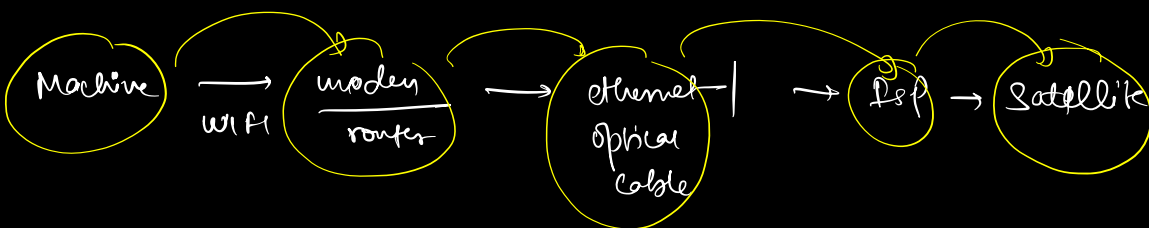 Machine
WIFI
modem
router
ethernet
optical
cable
Isp
Satellite